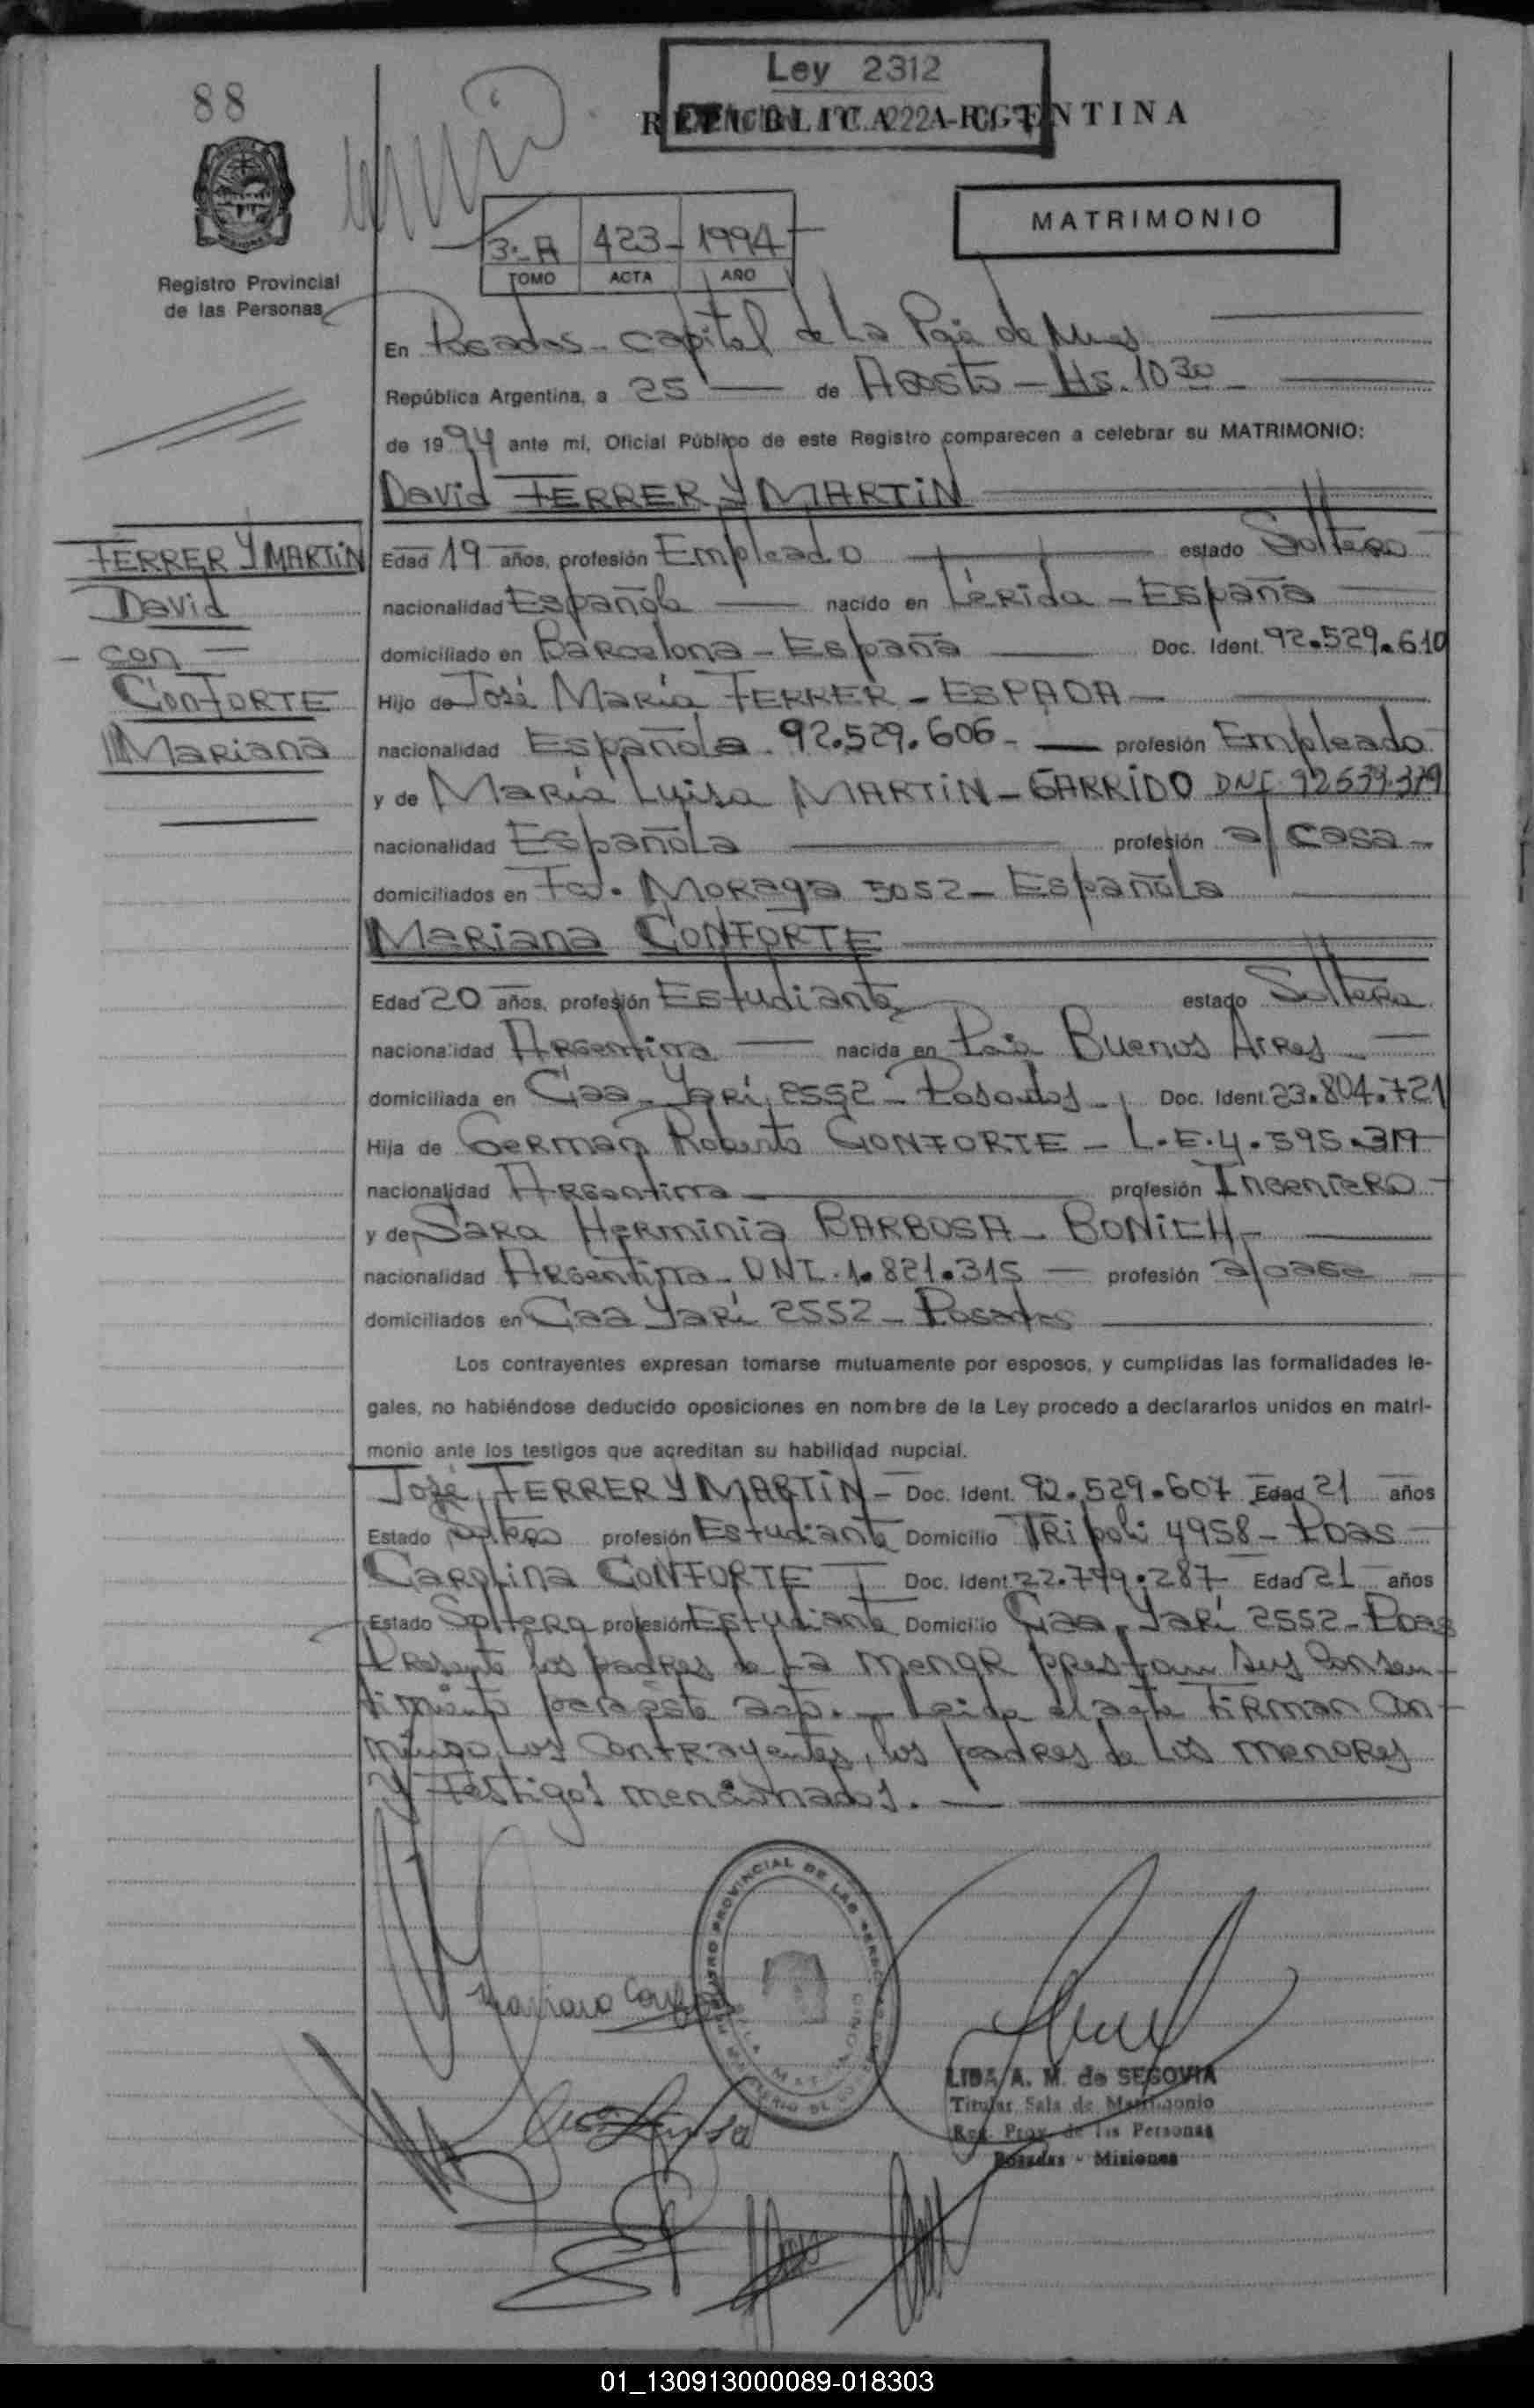 88
Ley 2312
REPUBLICA ARGENTINA
MATRIMONIO
3º A 423 - 1994
TOMO ACTA AÑO
Registro Provincial
de las Personas
En Posadas - capital de La Pcia de Mnes
República Argentina, a 25 de Agosto - Hs. 10 30
de 1994 ante mi, Oficial Público de este Registro comparecen a celebrar su MATRIMONIO:
David FERRER Y MARTIN
FERRER Y MARTIN
David
con
CONFORTE
Mariana
Edad 19 años, profesión Empleado estado Soltero
nacionalidad Española nacido en Lérida - España
domiciliado en Barcelona - España Doc. Ident. 92.529.610
Hijo de José María FERRER - ESPADA
nacionalidad Española 92.529.606 - profesión Empleado
y de María Luisa MARTIN - GARRIDO DNI 92.539.379
nacionalidad Española profesión a/casa
domiciliados en Fco. Moraga 5052 - Española
Mariana CONFORTE
Edad 20 años, profesión Estudiante estado Soltera
nacionalidad Argentina nacida en Pcia Buenos Aires
domiciliada en Caa-Yarí 2552 - Posadas - Doc. Ident. 23.804.721
Hija de German Roberto CONFORTE - L.E. 4.595.319
nacionalidad Argentina profesión Ingeniero
y de Sara Herminia BARBOSA - BONICH -
nacionalidad Argentina - DNI. 1.821.315 profesión a/casa
domiciliados en Caa Yarí 2552 - Posadas
Los contrayentes expresan tomarse mutuamente por esposos, y cumplidas las formalidades le-
gales, no habiéndose deducido oposiciones en nombre de la Ley procedo a declararlos unidos en matri-
monio ante los testigos que acreditan su habilidad nupcial.
José FERRER Y MARTIN - Doc. Ident. 92.529.607 Edad 21 años
Estado Soltero profesión Estudiante Domicilio Tripoli 4958 - Pdas
Carolina CONFORTE Doc. Ident. 22.799.287 Edad 21 años
Estado Soltera profesión Estudiante Domicilio Caa-Yarí 2552 - Pdas
Presente los padres de La menor prestan sus Consen-
timiento para este acto. - Leida el acta Firman Con-
migo, Los Contrayentes, los padres de Los menores
y Testigos mencionados. -
Mariana Conforte
REGISTRO PROVINCIAL DE LAS PERSONAS
LIDA A. M. de SEGOVIA
Titular Sala de Matrimonio
Reg. Prov. de las Personas
Posadas - Misiones
01_130913000089-018303